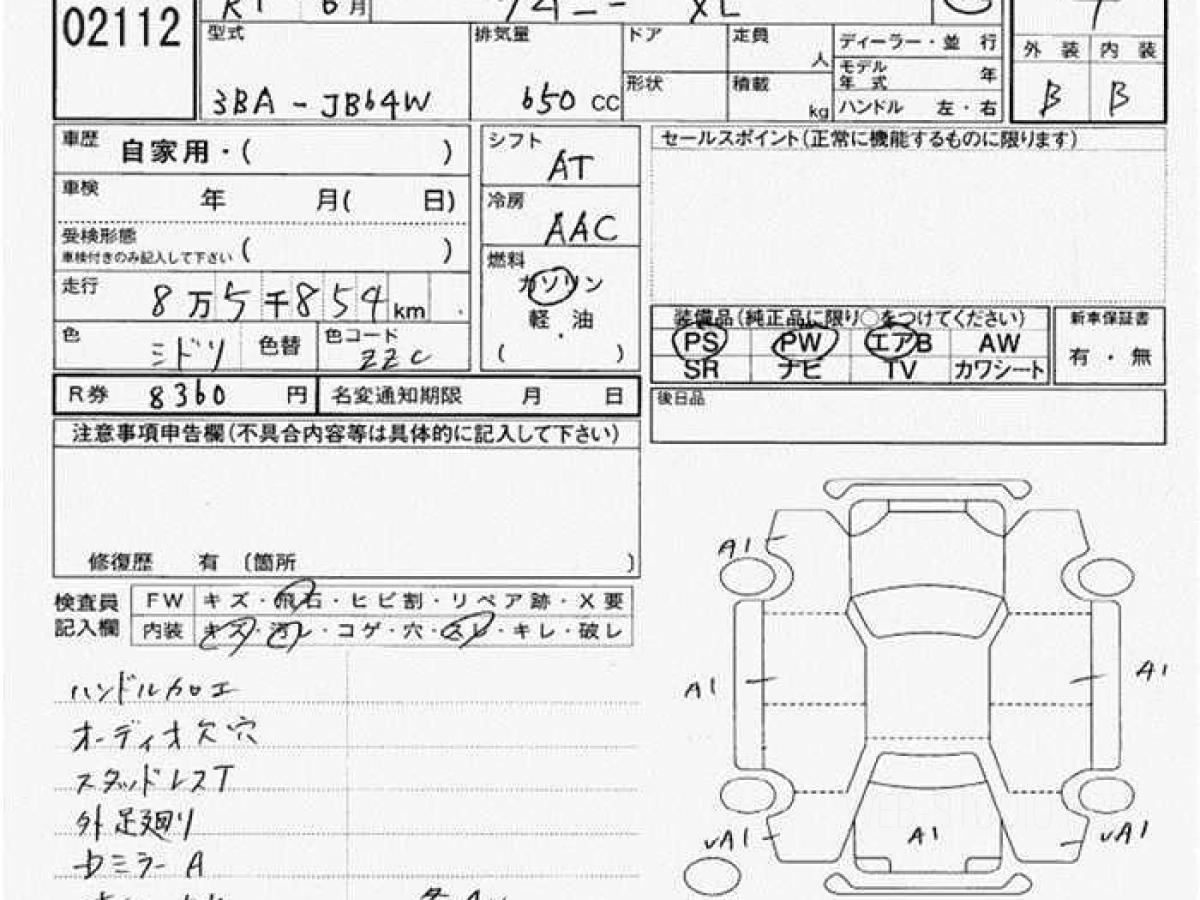 02112
R1 6月 ジムニー XL 4
型式 排気量 ドア 定員 人 ディーラー・並 行 外 装 内 装
モデル年 式 年
3BA-JB64W 650 CC 形状 積載 kg ハンドル 左・右 B B
車歴 自家用・( )
シフト AT
セールスポイント(正常に機能するものに限ります)
車検 年 月( 日)
冷房 AAC
受検形態 ( )
車検付きのみ記入して下さい
燃料
ガソリン
軽 油
( )
走行 8万5千854km
色 ミドリ 色替 色コード ZZC
装備品(純正品に限り○をつけてください)
PS PW エアB AW
SR ナビ TV カワシート
新車保証書
有・無
R券 8360 円 名変通知期限 月 日
後日品
注意事項申告欄(不具合内容等は具体的に記入して下さい)
修復歴 有 (箇所 )
検査員 FW キズ・飛石・ヒビ割・リペア跡・X要
記入欄 内装 キズ・汚レ・コゲ・穴・スレ・キレ・破レ
ハンドル加工
オーディオ欠穴
スタッドレスT
外足廻り
Dミラー A
A1
A1
A1
vA1
A1
vA1